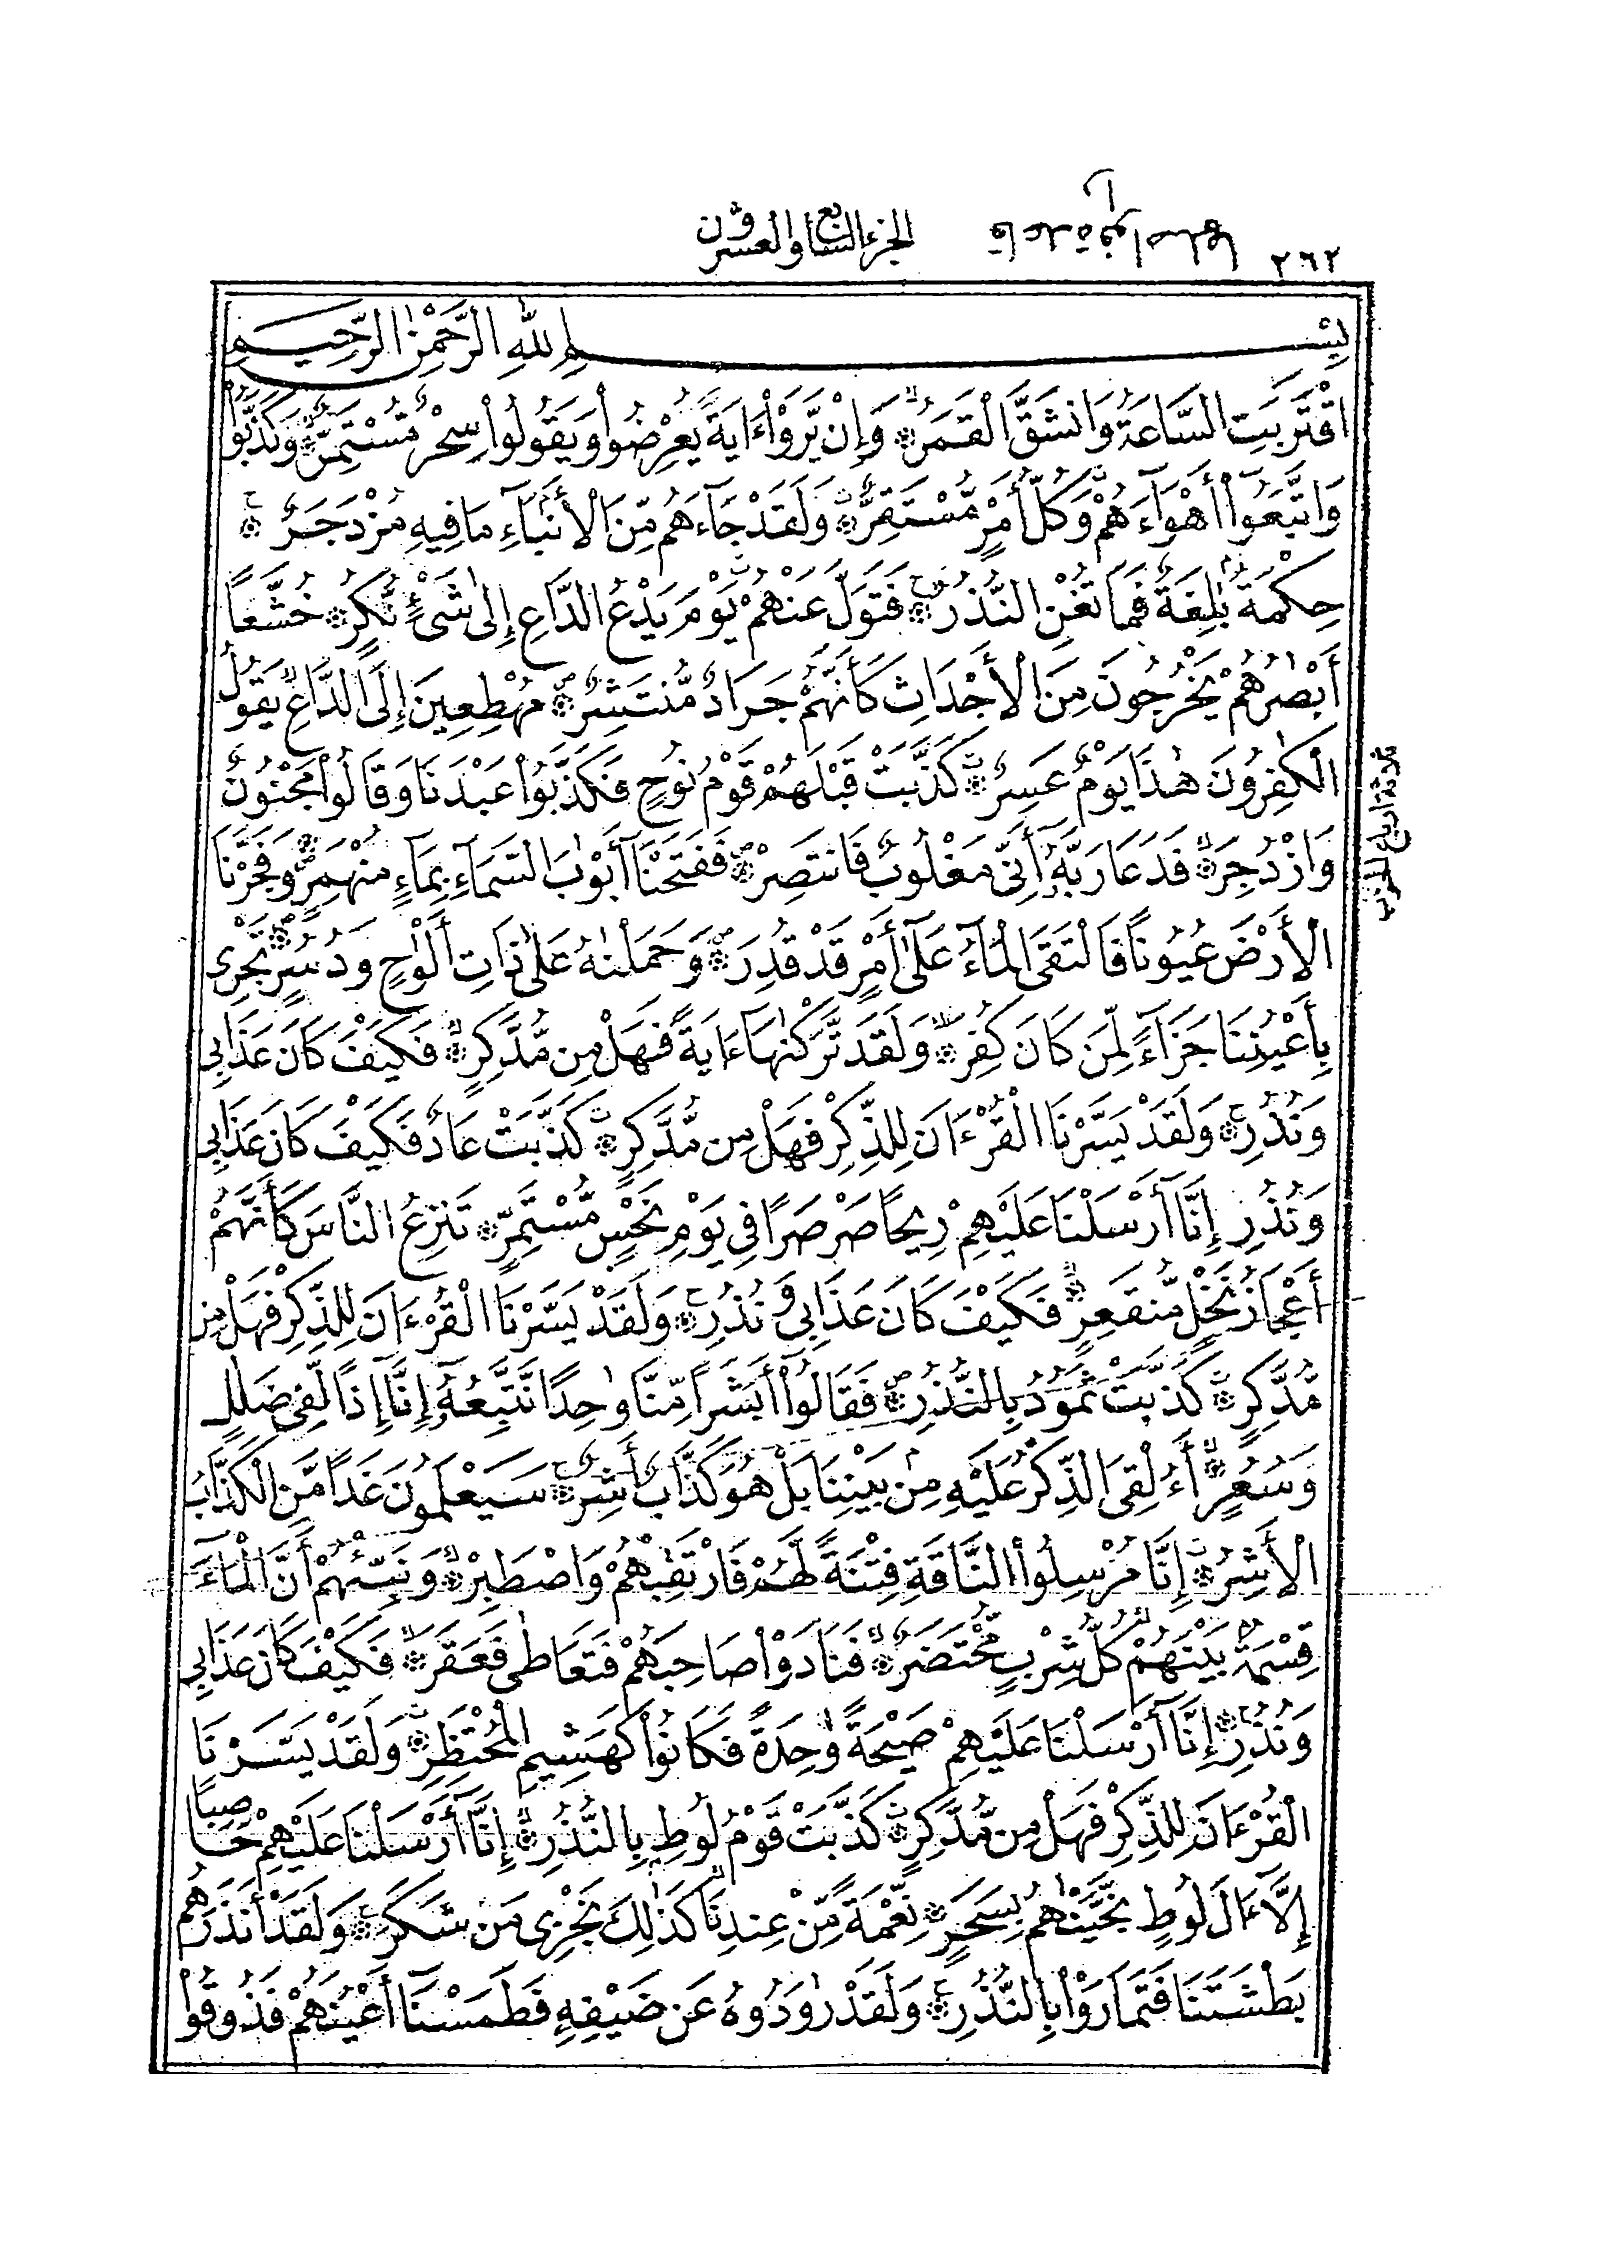 ٢٦٢ قاعدة فواصلها را الجزء السابع والعشرون
بِسْمِ اللهِ الرَّحْمٰنِ الرَّحِيمِ
اقْتَرَبَتِ السَّاعَةُ وَانشَقَّ الْقَمَرُ ۞ وَإِنْ يَرَوْا ءَايَةً يُعْرِضُوا وَيَقُولُوا سِحْرٌ مُّسْتَمِرٌّ ۞ وَكَذَّبُوا
وَاتَّبَعُوا أَهْوَآءَهُمْ وَكُلُّ أَمْرٍ مُّسْتَقِرٌّ ۞ وَلَقَدْ جَآءَهُم مِّنَ الْأَنبَآءِ مَا فِيهِ مُزْدَجَرٌ ۞
حِكْمَةٌ بٰلِغَةٌ فَمَا تُغْنِ النُّذُرُ ۞ فَتَوَلَّ عَنْهُمْ يَوْمَ يَدْعُ الدَّاعِ إِلٰى شَىْءٍ نُّكُرٍ ۞ خُشَّعًا
أَبْصٰرُهُمْ يَخْرُجُونَ مِنَ الْأَجْدَاثِ كَأَنَّهُمْ جَرَادٌ مُّنتَشِرٌ ۞ مُهْطِعِينَ إِلَى الدَّاعِ يَقُولُ
الْكٰفِرُونَ هٰذَا يَوْمٌ عَسِرٌ ۞ كَذَّبَتْ قَبْلَهُمْ قَوْمُ نُوحٍ فَكَذَّبُوا عَبْدَنَا وَقَالُوا مَجْنُونٌ
وَازْدُجِرَ ۞ فَدَعَا رَبَّهُ أَنِّى مَغْلُوبٌ فَانتَصِرْ ۞ فَفَتَحْنَآ أَبْوٰبَ السَّمَآءِ بِمَآءٍ مُّنْهَمِرٍ ۞ وَفَجَّرْنَا
الْأَرْضَ عُيُونًا فَالْتَقَى الْمَآءُ عَلٰى أَمْرٍ قَدْ قُدِرَ ۞ وَحَمَلْنٰهُ عَلٰى ذَاتِ أَلْوٰحٍ وَدُسُرٍ ۞ تَجْرِى
بِأَعْيُنِنَا جَزَآءً لِّمَن كَانَ كُفِرَ ۞ وَلَقَد تَّرَكْنٰهَآ ءَايَةً فَهَلْ مِن مُّدَّكِرٍ ۞ فَكَيْفَ كَانَ عَذَابِى
وَنُذُرِ ۞ وَلَقَدْ يَسَّرْنَا الْقُرْءَانَ لِلذِّكْرِ فَهَلْ مِن مُّدَّكِرٍ ۞ كَذَّبَتْ عَادٌ فَكَيْفَ كَانَ عَذَابِى
وَنُذُرِ إِنَّآ أَرْسَلْنَا عَلَيْهِمْ رِيحًا صَرْصَرًا فِى يَوْمِ نَحْسٍ مُّسْتَمِرٍّ ۞ تَنزِعُ النَّاسَ كَأَنَّهُمْ
أَعْجَازُ نَخْلٍ مُّنقَعِرٍ ۞ فَكَيْفَ كَانَ عَذَابِى وَنُذُرِ ۞ وَلَقَدْ يَسَّرْنَا الْقُرْءَانَ لِلذِّكْرِ فَهَلْ مِن
مُّدَّكِرٍ ۞ كَذَّبَتْ ثَمُودُ بِالنُّذُرِ ۞ فَقَالُوا أَبَشَرًا مِّنَّا وٰحِدًا نَّتَّبِعُهُ إِنَّآ إِذًا لَّفِى ضَلٰلٍ
وَسُعُرٍ ۞ أَءُلْقِىَ الذِّكْرُ عَلَيْهِ مِن بَيْنِنَا بَلْ هُوَ كَذَّابٌ أَشِرٌ ۞ سَيَعْلَمُونَ غَدًا مَّنِ الْكَذَّابُ
الْأَشِرُ ۞ إِنَّا مُرْسِلُوا النَّاقَةِ فِتْنَةً لَّهُمْ فَارْتَقِبْهُمْ وَاصْطَبِرْ ۞ وَنَبِّئْهُمْ أَنَّ الْمَآءَ
قِسْمَةٌ بَيْنَهُمْ كُلُّ شِرْبٍ مُّحْتَضَرٌ ۞ فَنَادَوْا صَاحِبَهُمْ فَتَعَاطٰى فَعَقَرَ ۞ فَكَيْفَ كَانَ عَذَابِى
وَنُذُرِ ۞ إِنَّآ أَرْسَلْنَا عَلَيْهِمْ صَيْحَةً وٰحِدَةً فَكَانُوا كَهَشِيمِ الْمُحْتَظِرِ ۞ وَلَقَدْ يَسَّرْنَا
الْقُرْءَانَ لِلذِّكْرِ فَهَلْ مِن مُّدَّكِرٍ ۞ كَذَّبَتْ قَوْمُ لُوطٍ بِالنُّذُرِ ۞ إِنَّآ أَرْسَلْنَا عَلَيْهِمْ حَاصِبًا
إِلَّآ ءَالَ لُوطٍ نَّجَّيْنٰهُم بِسَحَرٍ ۞ نِّعْمَةً مِّنْ عِندِنَا كَذٰلِكَ نَجْزِى مَن شَكَرَ ۞ وَلَقَدْ أَنذَرَهُم
بَطْشَتَنَا فَتَمَارَوْا بِالنُّذُرِ ۞ وَلَقَدْ رٰوَدُوهُ عَن ضَيْفِهِ فَطَمَسْنَآ أَعْيُنَهُمْ فَذُوقُوا
ثلاثة ارباع الحزب